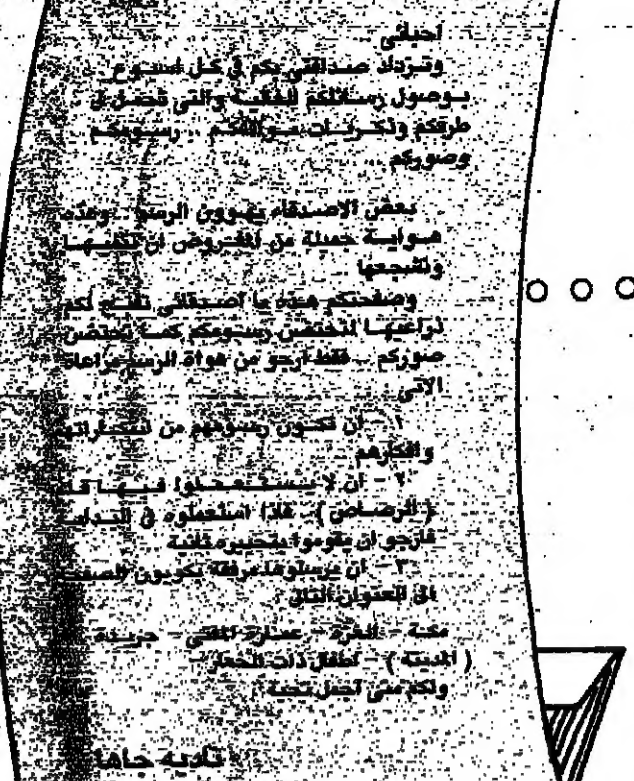 أحبائي ..
وتزداد صداقتي بكم في كل اسبوع
بوصول رسائلكم والتي تحمل لي
طرفكم وذكريات مواقفكم .. رسومكم
وصوركم ..
بعض الاصدقاء يهوون الرسم .. وهذه
هوواية جميلة من المفروض ان
ونشجعها
وصفحتكم هذه يا اصدقائي تفتح لكم
ذراعيها لتحتضن رسومكم كما تحتضن
صوركم .. فقط ارجو من هواة الرسم مراعاة
الاتي
١ - ان تكون رسومهم من
وافكارهم
٢ - ان لا يستعملوا فيها
( الرصاص ) - فاذا استعملوه في
فأرجو ان يقوموا بتحبيره ثانية
٣ - ان يرسلوها مرفقة بكوبون
الى العنوان التالي :
مكة - - عمارة - جريدة
( المدينة ) - اطفال ذات
ولكم مني اجمل تحية
نادية